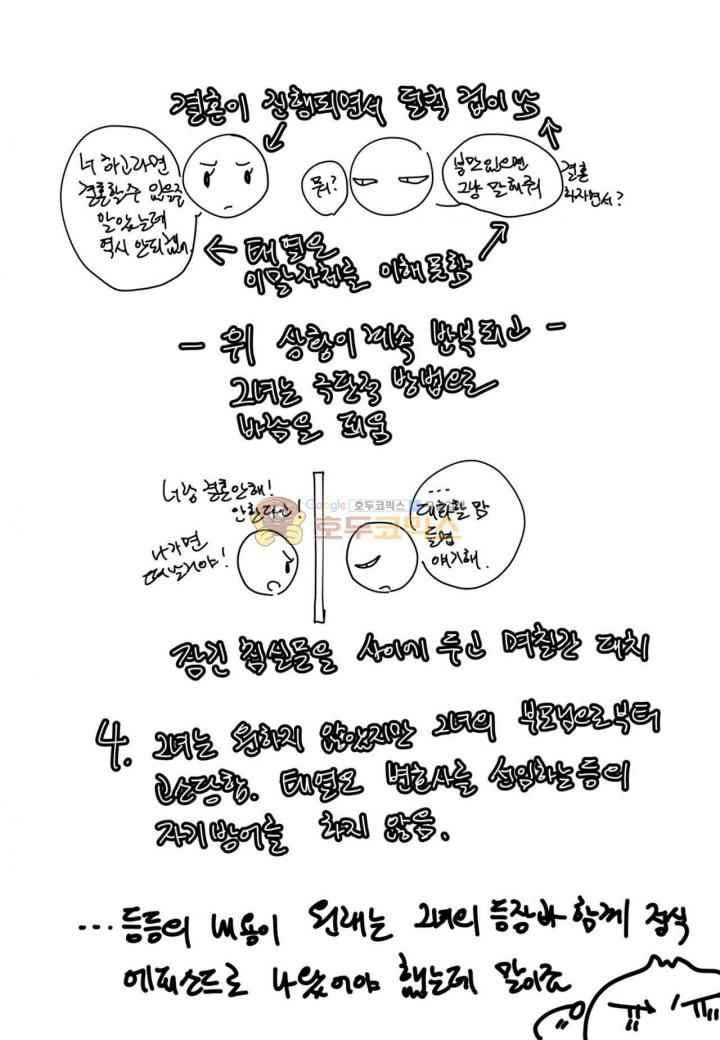 결혼이 진행되면서 덜컥 겁이 남
너 하고라면
결혼할수 있을줄
알았는데
역시 안되겠어.
뭐?
불만있으면
그냥 말해줘
결혼
하자면서?
태열은
이말자체를 이해못함
- 위 상황이 계속 반복되고 -
그녀는 극단적 방법으로
바람을 피움
너랑 결혼안해!
안한다고!
나가면
때릴거야!
Google 호두코믹스
호두코믹스
....
대화할 맘
들면
얘기해.
잠긴 침실문을 사이에 두고 며칠간 대치
4. 그녀는 원하지 않았지만 그녀의 부모님으로부터
고소당함. 태열도 변호사를 선임하는등의
자기방어를 하지 않음.
...등등의 내용이 원래는 그녀의 등장과 함께 정식
에피소드로 나왔어야 했는데 말이죠